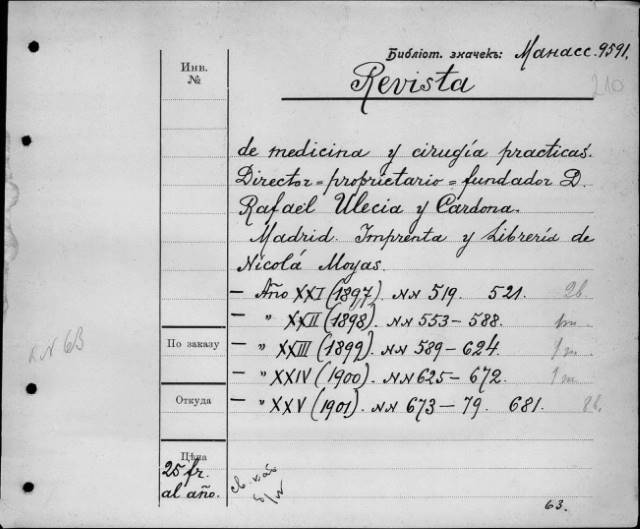 Библіот. значекъ: Манасс. 9591.
210
Инв. №
Revista
de medicina y cirugía practicas.
Director-proprietario-fundador D.
Rafael Ulecia y Cardona.
Madrid. Imprenta y Librería de
Nicolá Moyas.
— Año XXI (1897). NN 519. 521. 2b.
— " XXII (1898). NN 553 – 588. 1m.
По заказу — " XXIII (1899). NN 589 – 624. 1m.
— " XXIV (1900). NN 625 – 672. 1m.
Откуда — " XXV (1901). NN 673 – 79. 681. 8b.
к N 63
Цѣна
25 fr.
al año.
св. каб
б/N
63.